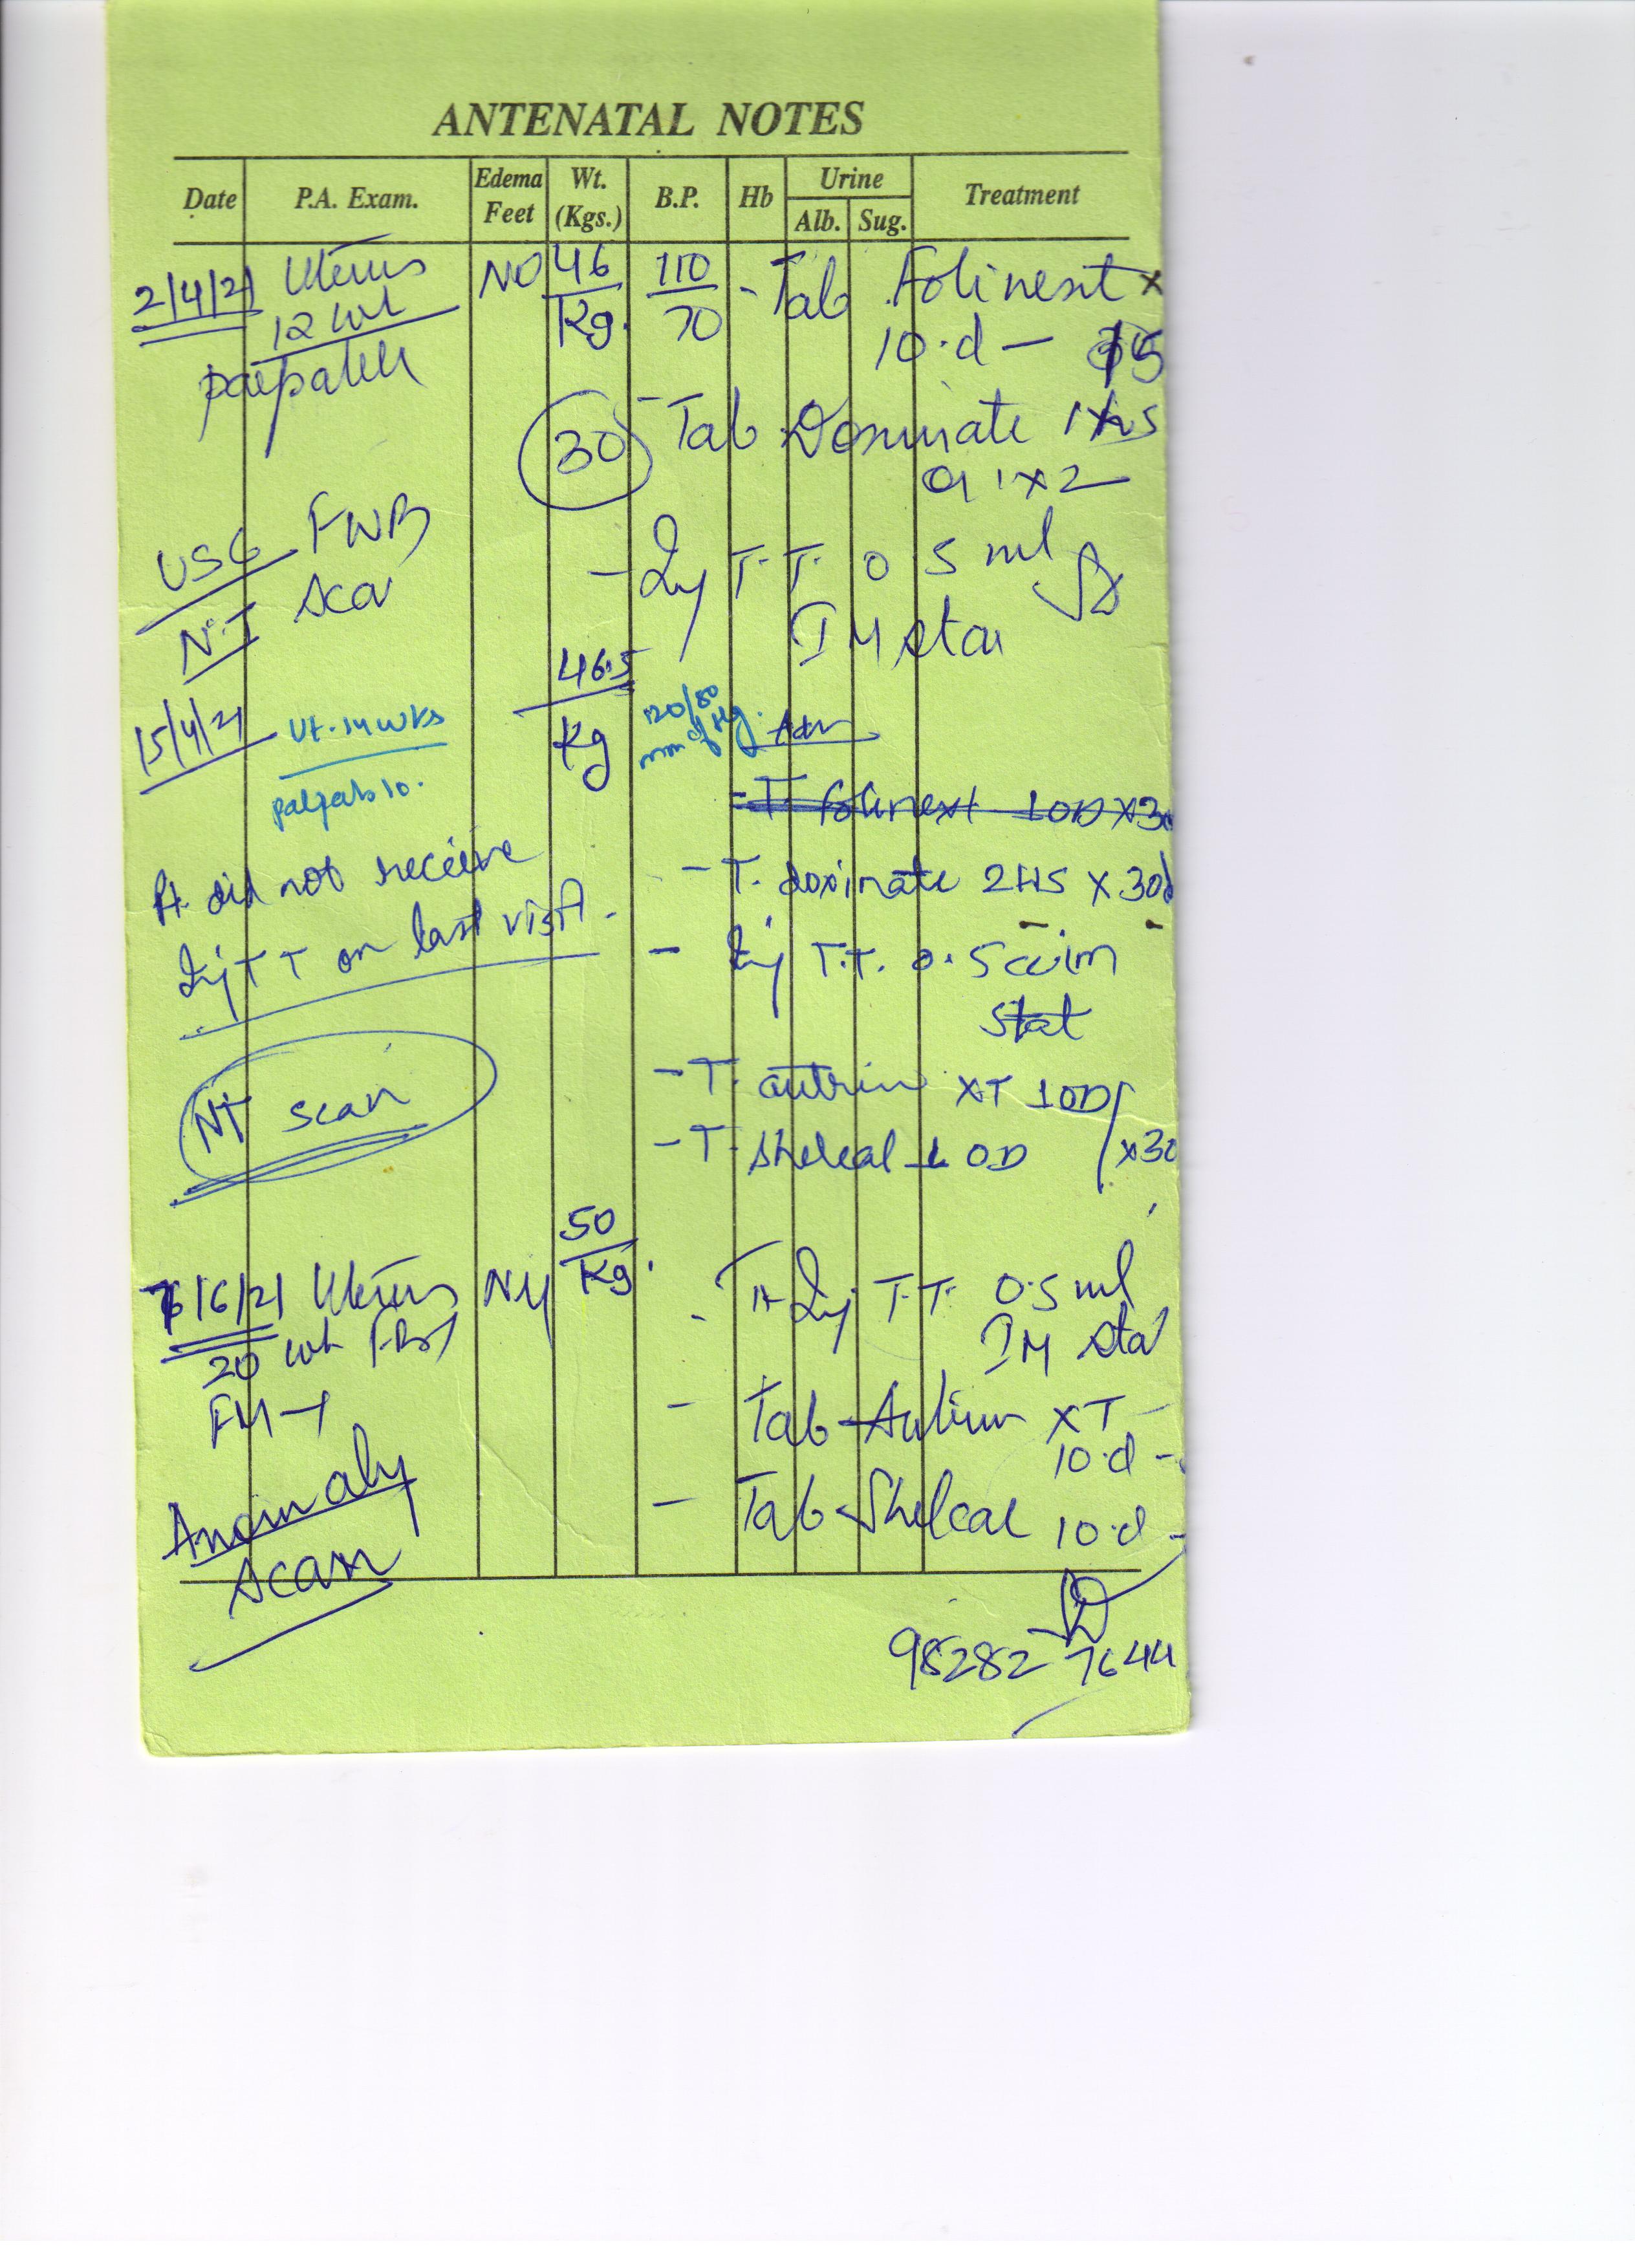 ANTENATAL NOTES
Date P.A. Exam. Edema Feet Wt. (Kgs.) B.P. Hb Urine Alb. Sug. Treatment
2/4/21 Uterus NO 46 Kg. 110/70 - Tab Folinext x
12 wk
10.d - 15
30 - Tab Doxinate 1 HS
USG FWB
N.T Scan
- Inj T.T. 0.5 ml
IM stat
15/4/21 Ut. 14 wks 46.5 Kg 120/80 mm of Hg. Adv
palpable.
- T. folinext 1OD x 30
Pt. did not receive
Inj TT on last visit.
- T. doxinate 2HS x 30d
- Inj T.T. 0.5cc im
stat
NT scan
- T. autrin XT 1OD
- T. shelcal 1 OD x30
/6/21 Uterus 50 Kg.
20 wk
- Inj T.T. 0.5 ml
IM stat
- Tab Autrin XT -
10.d -
- Tab Shelcal 10.d -
Anomaly
scan
98282 7644